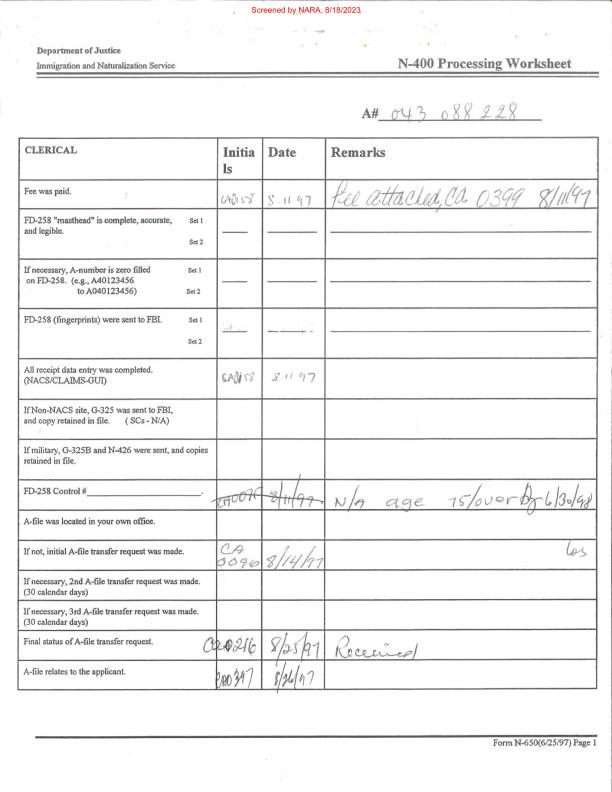 Screened by NARA, 8/18/2023
Department of Justice
Immigration and Naturalization Service
N-400 Processing Worksheet
A# 043 088 228
CLERICAL Initia Date Remarks
ls
Fee was paid. CA0158 8 11 97 Fee attached, CA 0399 8/11/97
FD-258 "masthead" is complete, accurate, Set 1
and legible.
Set 2
If necessary, A-number is zero filled Set 1
on FD-258. (e.g., A40123456
to A040123456) Set 2
FD-258 (fingerprints) were sent to FBI. Set 1
Set 2
All receipt data entry was completed. CA0158 8 11 97
(NACS/CLAIMS-GUI)
If Non-NACS site, G-325 was sent to FBI,
and copy retained in file. ( SCs - N/A)
If military, G-325B and N-426 were sent, and copies
retained in file.
FD-258 Control # . 8/11/97 N/A age 75/over by 6/30/98
A-file was located in your own office.
If not, initial A-file transfer request was made. CA 0096 8/14/97 Los
If necessary, 2nd A-file transfer request was made.
(30 calendar days)
If necessary, 3rd A-file transfer request was made.
(30 calendar days)
Final status of A-file transfer request. 8/25/97 Received
A-file relates to the applicant. 8/26/97
Form N-650(6/25/97) Page 1